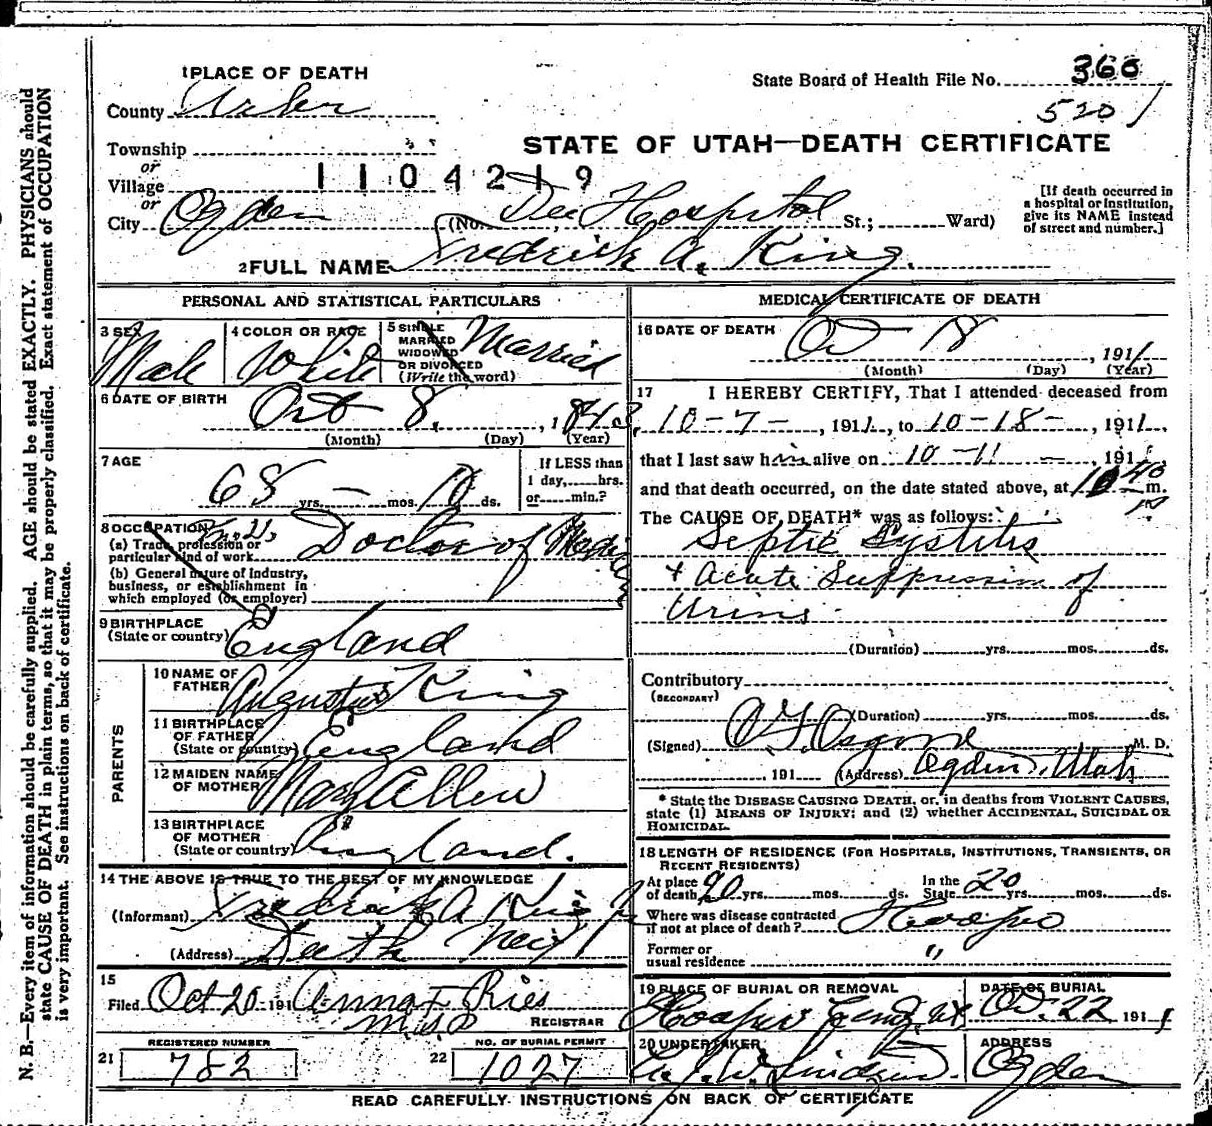 1 PLACE OF DEATH
State Board of Health File No. 360
County Weber
5201
Township
STATE OF UTAH—DEATH CERTIFICATE
or
Village
1104219
or
City Ogden (No. Dee Hospital St.; Ward)
[If death occurred in a hospital or institution, give its NAME instead of street and number.]
2 FULL NAME Fredrick A. King.
PERSONAL AND STATISTICAL PARTICULARS
3 SEX Male
4 COLOR OR RACE White
5 SINGLE MARRIED WIDOWED OR DIVORCED (Write the word) Married
6 DATE OF BIRTH Oct 8, 1843
(Month) (Day) (Year)
7 AGE 68 yrs. — mos. 10 ds.
If LESS than 1 day, hrs. or min.?
8 OCCUPATION
(a) Trade, profession or particular kind of work Doctor of
(b) General nature of industry, business, or establishment in which employed (or employer)
9 BIRTHPLACE (State or country) England
PARENTS
10 NAME OF FATHER Augustus King
11 BIRTHPLACE OF FATHER (State or country) England
12 MAIDEN NAME OF MOTHER Mary Allen
13 BIRTHPLACE OF MOTHER (State or country) England.
14 THE ABOVE IS TRUE TO THE BEST OF MY KNOWLEDGE
(Informant) Fredrick A King Jr
(Address)
15 Filed Oct 20 191 Anna F Ries
REGISTRAR
21 REGISTERED NUMBER 782
22 NO. OF BURIAL PERMIT 1027
MEDICAL CERTIFICATE OF DEATH
16 DATE OF DEATH Oct 18, 1911
(Month) (Day) (Year)
17 I HEREBY CERTIFY, That I attended deceased from
10-7-, 1911, to 10-18-, 1911,
that I last saw him alive on 10-11 —, 191
and that death occurred, on the date stated above, at 10 40 m.
The CAUSE OF DEATH* was as follows:
Septic Cystitis
+ Acute Suppression of
Urine
(Duration) yrs. mos. ds.
Contributory
(SECONDARY)
(Duration) yrs. mos. ds.
(Signed) M. D.
, 191 (Address) Ogden, Utah
* State the DISEASE CAUSING DEATH, or, in deaths from VIOLENT CAUSES, state (1) MEANS OF INJURY; and (2) whether ACCIDENTAL, SUICIDAL OR HOMICIDAL.
18 LENGTH OF RESIDENCE (FOR HOSPITALS, INSTITUTIONS, TRANSIENTS, OR RECENT RESIDENTS)
At place of death 20 yrs. mos. ds. In the State 20 yrs. mos. ds.
Where was disease contracted if not at place of death? Hooper
Former or usual residence "
19 PLACE OF BURIAL OR REMOVAL Hooper Cem. Ut
DATE OF BURIAL Oct. 22 1911
20 UNDERTAKER
ADDRESS Ogden
READ CAREFULLY INSTRUCTIONS ON BACK OF CERTIFICATE
N. B.—Every item of information should be carefully supplied. AGE should be stated EXACTLY. PHYSICIANS should
state CAUSE OF DEATH in plain terms, so that it may be properly classified. Exact statement of OCCUPATION
is very important. See instructions on back of certificate.